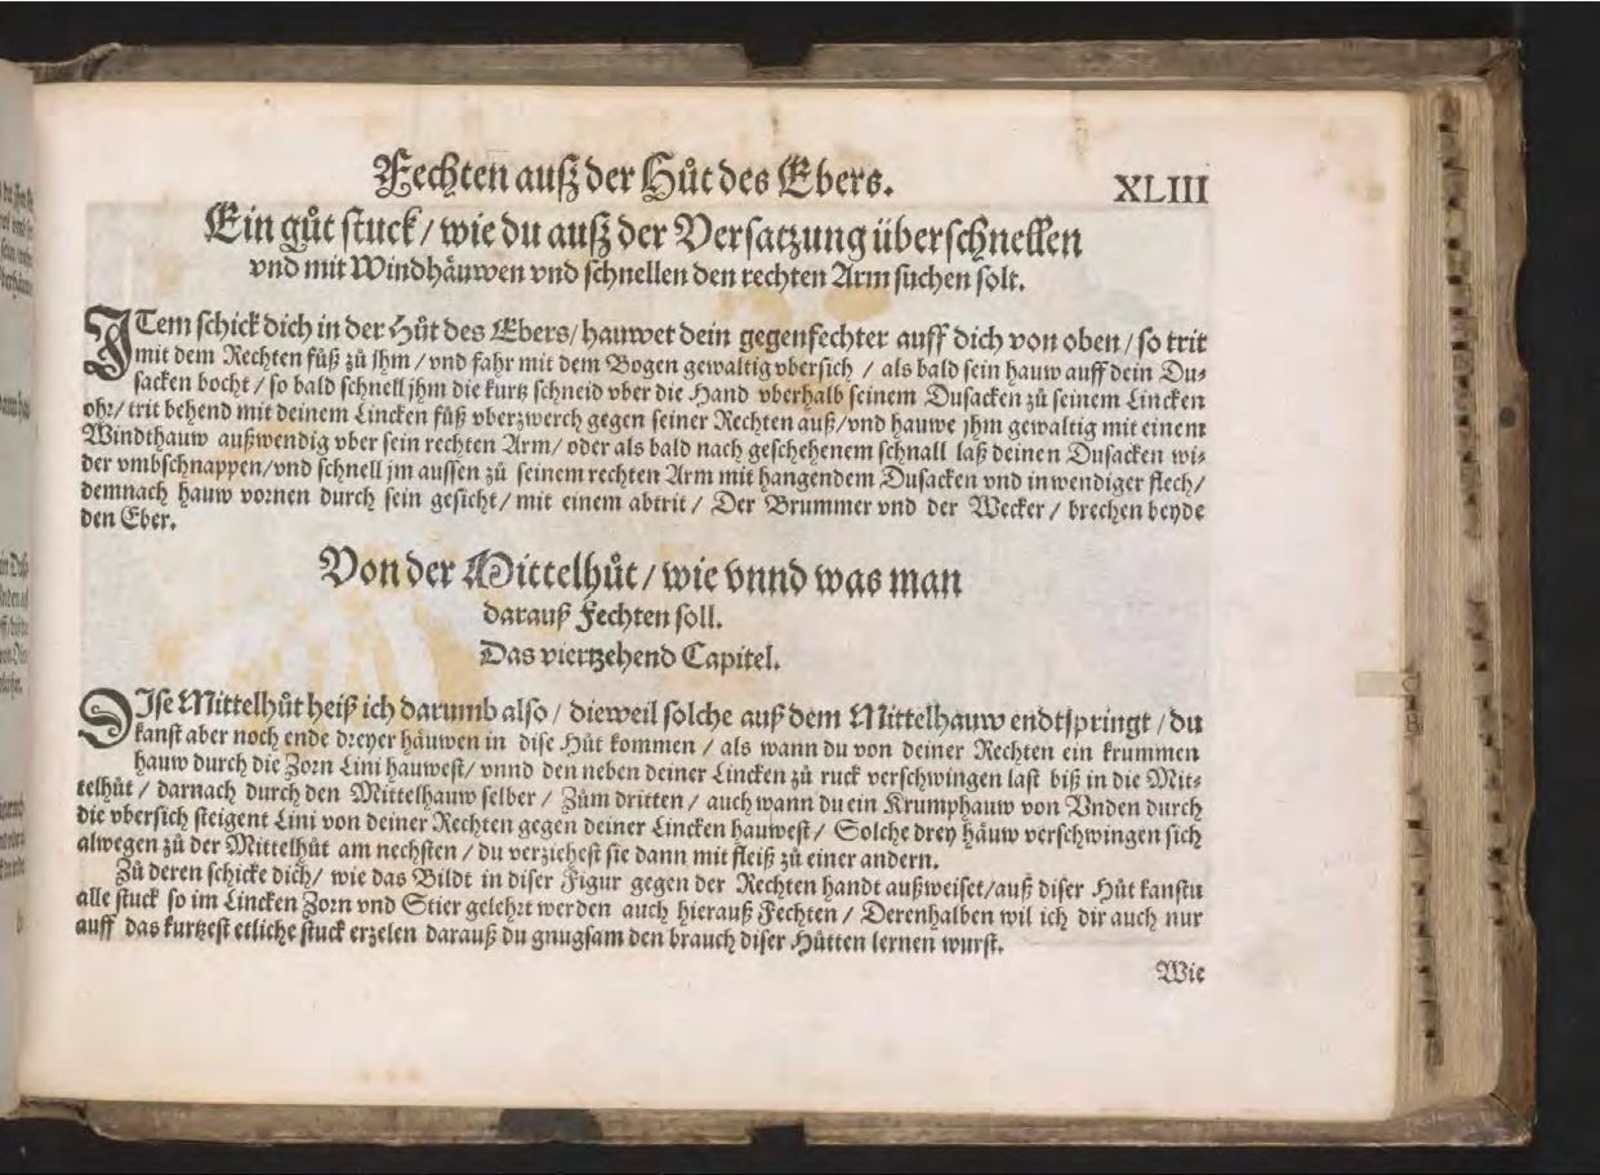 Fechten auß der Hůt des Ebers.
XLIII
Ein gůt stuck / wie du auß der Versatzung überschnellen
vnd mit Windhäuwen vnd schnellen den rechten Arm suchen solt.
ITem schick dich in der Hůt des Ebers / hauwet dein gegenfechter auff dich von oben / so trit
mit dem Rechten fůß zů jhm / vnd fahr mit dem Bogen gewaltig vbersich / als bald sein hauw auff dein Du-
sacken bocht / so bald schnell jhm die kurtz schneid vber die Hand vberhalb seinem Dusacken zů seinem Lincken
ohr / trit behend mit deinem Lincken fůß vberzwerch gegen seiner Rechten auß / vnd hauwe jhm gewaltig mit einem
Windthauw außwendig vber sein rechten Arm / oder als bald nach geschehenem schnall laß deinen Dusacken wi-
der vmbschnappen / vnd schnell jm aussen zů seinem rechten Arm mit hangendem Dusacken vnd inwendiger flech /
demnach hauw vornen durch sein gesicht / mit einem abtrit / Der Brummer vnd der Wecker / brechen beyde
den Eber.
Von der Mittelhůt / wie vnnd was man
darauß Fechten soll.
Das viertzehend Capitel.
DIse Mittelhůt heiß ich darumb also / dieweil solche auß dem Mittelhauw endtspringt / du
kanst aber noch ende dreyer häuwen in dise Hůt kommen / als wann du von deiner Rechten ein krummen
hauw durch die Zorn Lini hauwest / vnnd den neben deiner Lincken zů ruck verschwingen last biß in die Mit-
telhůt / darnach durch den Mittelhauw selber / Zům dritten / auch wann du ein Krumphauw von Vnden durch
die vbersich steigent Lini von deiner Rechten gegen deiner Lincken hauwest / Solche drey häuw verschwingen sich
alwegen zů der Mittelhůt am nechsten / du verziehest sie dann mit fleiß zů einer andern.
Zů deren schicke dich / wie das Bildt in diser Figur gegen der Rechten handt außweiset / auß diser Hůt kanstu
alle stuck so im Lincken Zorn vnd Stier gelehrt werden auch hierauß Fechten / Derenhalben wil ich dir auch nur
auff das kurtzest etliche stuck erzelen darauß du gnugsam den brauch diser Hůtten lernen wurst.
Wie